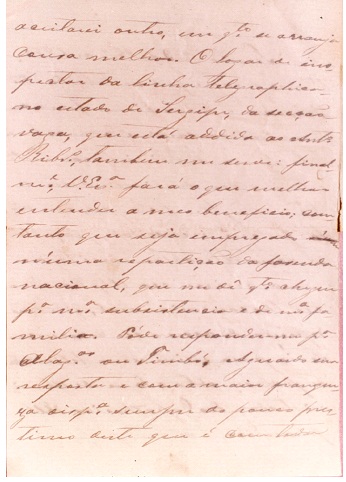 acceitarei outro, em qto se arranja
causa melhor. O logar de ins
pector da linha telegraphica
no estado de Sergipe, da secção
vaga, que está addida ao
Ribo, tambem me serve: final
me, V. Exa fará o que melhor
entender a meu beneficio, com
tanto que seja empregado
n'uma repartição da fazenda
nacional, que me dê
pa ma subsistencia e de ma fa
milia. Póde responder-me pa
ou Timbó. Aguardo sua
resposta e com a maior franque
za dispa sempre do pouco pres
timo deste que é com toda